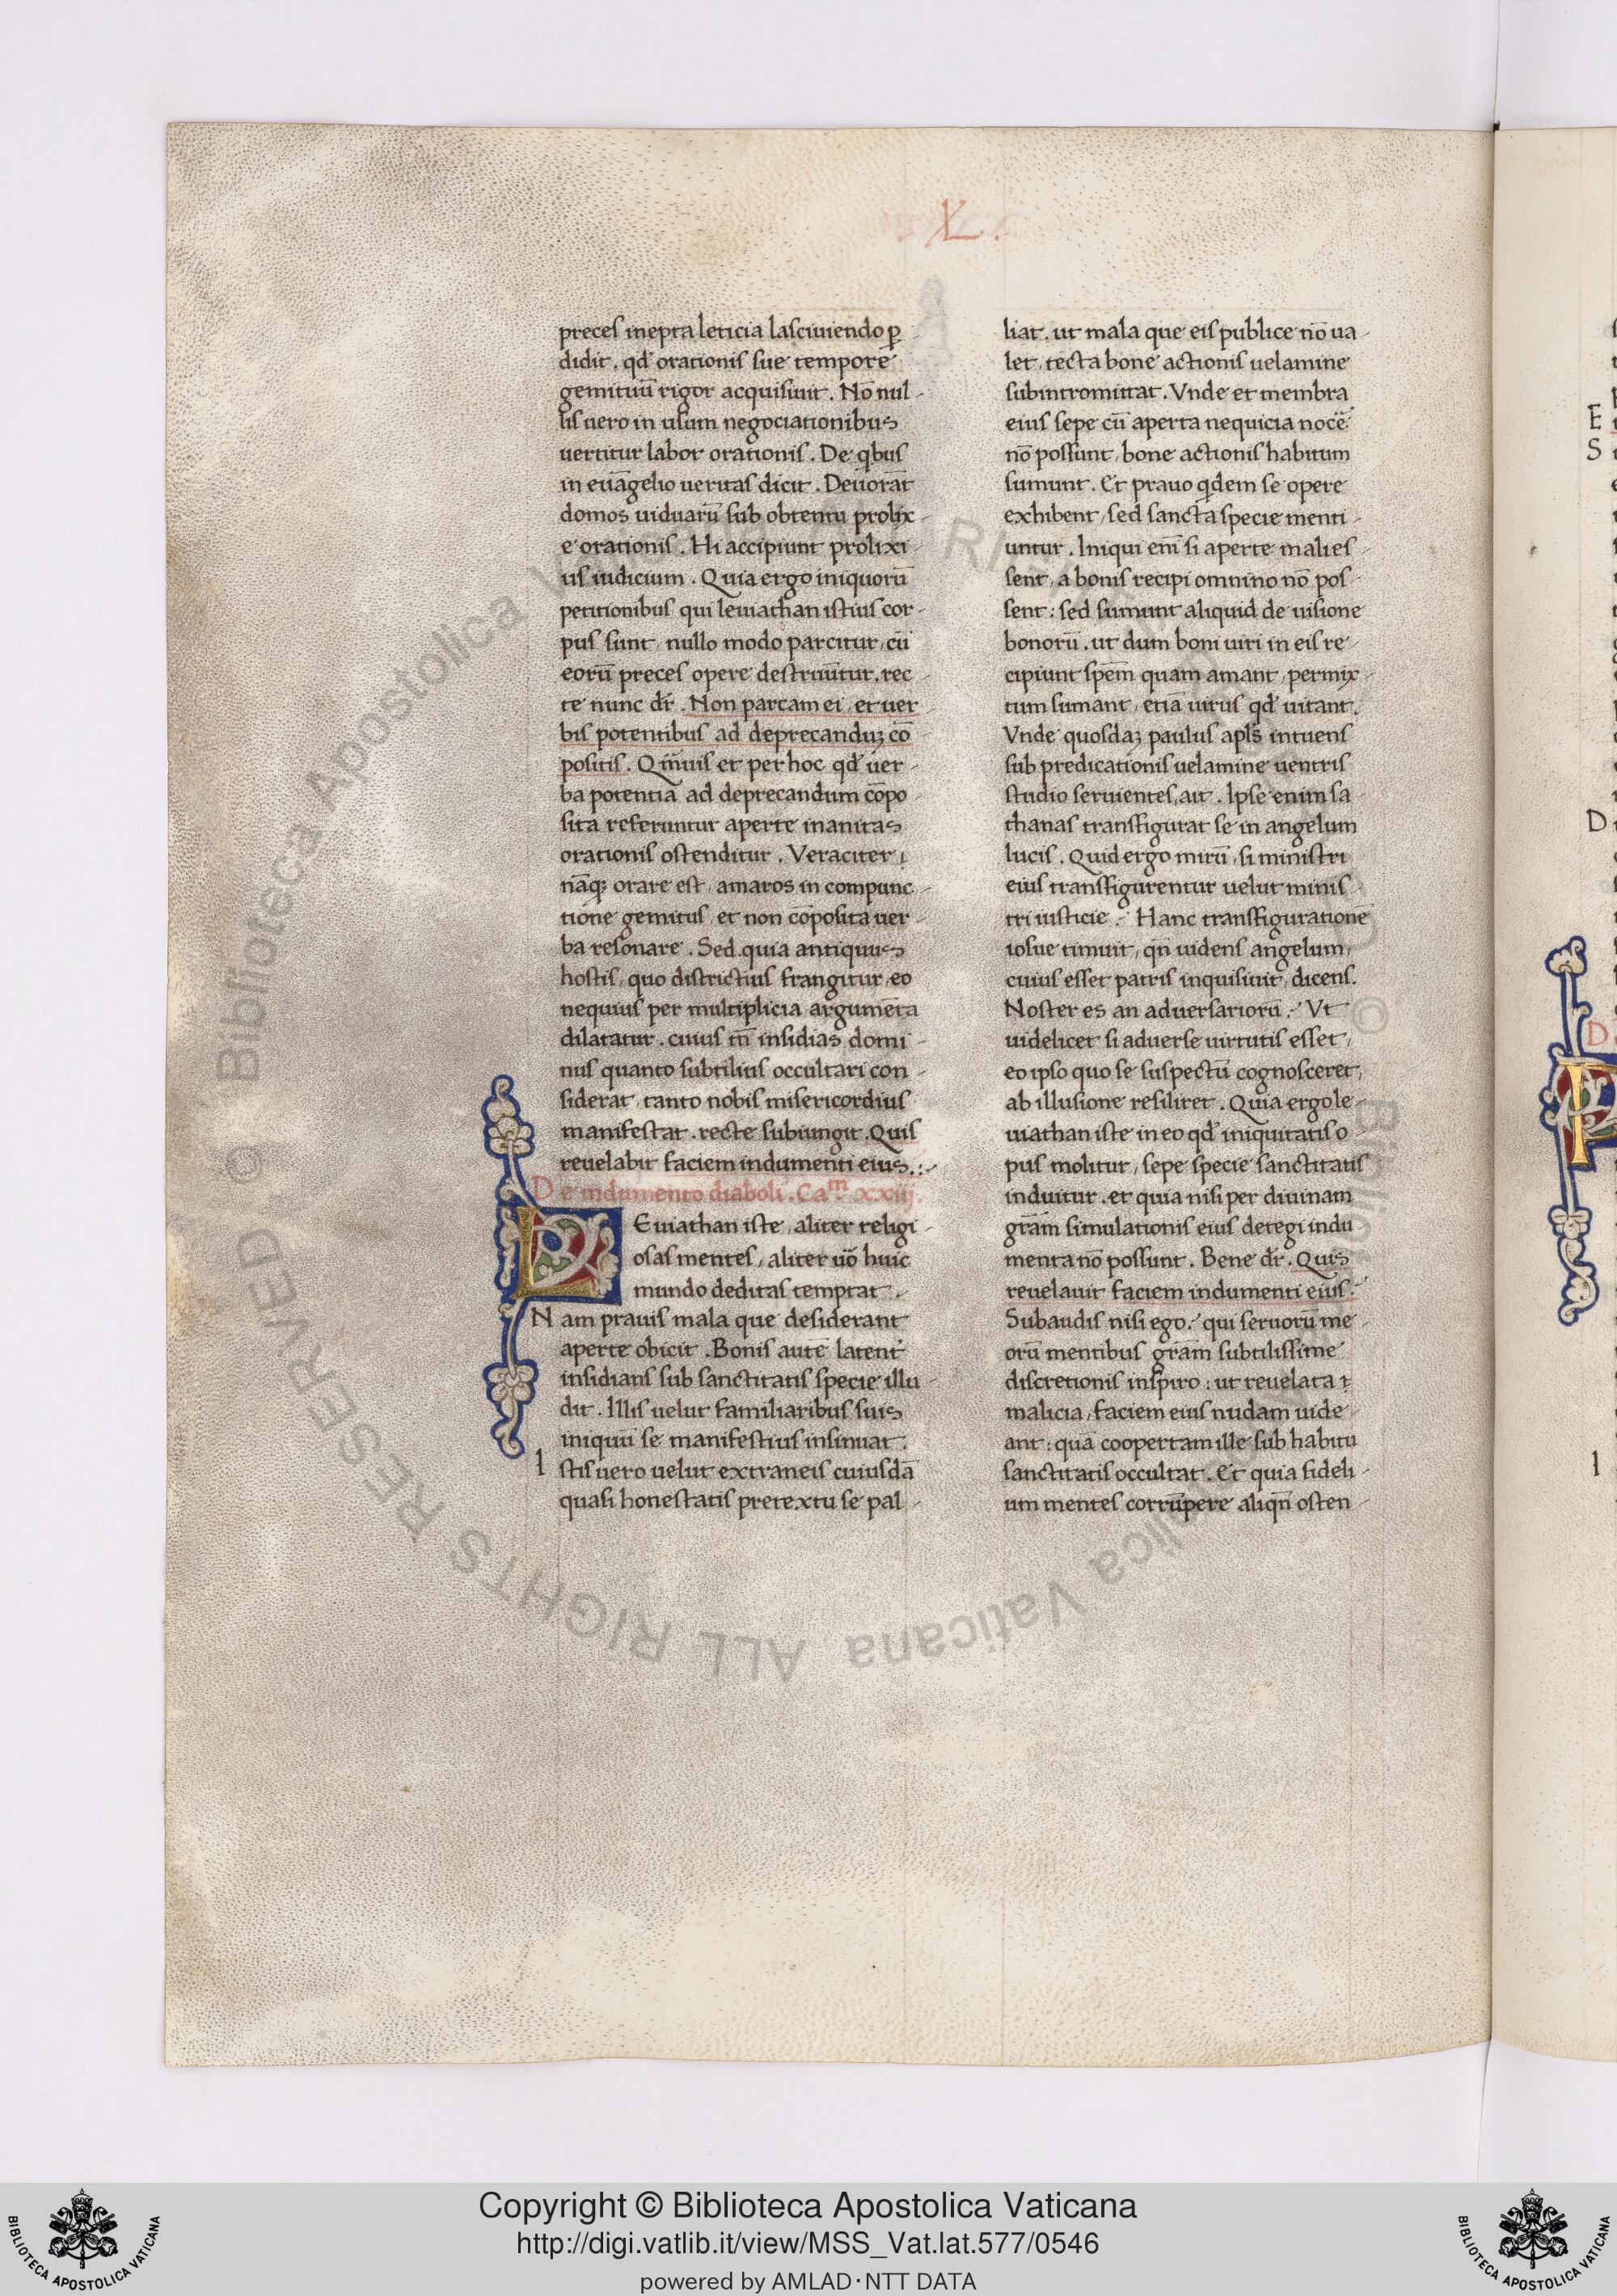 XL.
preces inepta leticia lasciuiendo ꝑ
didit . qd̕ orationis sue tempore
gemituū rigor acquisiuit . Nō nul-
lis uero in usum negociationibus
uertitur labor orationis . De qbus
in euāgelio ueritas dicit . Deuorāt
domos uiduarū sub obtentu prolix-
e orationis . Hi accipiunt prolixi-
us iudicium . Quia ergo iniquorū
petitionibus qui leuiathan istius cor-
pus sunt, nullo modo parcitur, cū
eorū preces opere destruūtur, rec-
te nunc dr̄ . Non parcam ei, et uer-
bis potentibus ad deprecanduꝫ cō
positis . Qm̄uis et per hoc qd̕ uer-
ba potentia ad deprecandum cōpo
sita referuntur aperte inanitas
orationis ostenditur . Veraciter
nāqꝫ orare est, amaros in compunc-
tione gemitus, et non cōposita uer-
ba resonare . Sed quia antiquus
hostis, quo districtius frangitur, eo
nequius per multiplicia argumēta
dilatatur . cuius tn̄ insidias domi-
nus quanto subtilius occultari con-
siderat, tanto nobis misericordius
manifestat . recte subiungit . Quis
reuelabit faciem indumenti eius.:-
De indumento diaboli . Caᵐ. xxiij.
LEuiathan iste, aliter religi-
osas mentes, aliter uō huic
mundo deditas temptat .
Nam prauis mala que desiderant
aperte obicit . Bonis autē latent̕
insidians sub sanctitatis specie illu
dit . Illis uelut familiaribus suis
iniquū se manifestius insinuat .
Istis uero uelut extraneis cuiusdā
quasi honestatis pretextu se pal-
liat . ut mala que eis publice nō ua-
let, tecta bone actionis uelamine
subintromittat . Vnde et membra
eius sepe cū aperta nequicia nocē̕
nō possunt, bone actionis habitum
sumunt . Et prauo qdem se opere
exhibent, sed sancta specie menti-
untur . Iniqui em̄ si aperte mali es-
sent, a bonis recipi omnino nō pos-
sent : sed sumunt aliquid de uisione
bonorū . ut dum boni uiri in eis re-
cipiunt spēm quam amant, permix-
tum sumant, etiā uirus qd̕ uitant.
Vnde quosdaꝫ paulus apl̄s intuens
sub predicationis uelamine uentris
studio seruientes, ait . Ipse enim sa-
thanas transfigurat se in angelum
lucis . Quid ergo mirū, si ministri
eius transfigurentur uelut minis-
tri iusticie . Hanc transfigurationē
iosue timuit, qn̄ uidens angelum,
cuius esset patris inquisiuit, dicens.
Noster es an aduersariorū . Vt
uidelicet si aduerse uirtutis esset,
eo ipso quo se suspectū cognosceret,
ab illusione resiliret . Quia ergo le-
uiathan iste in eo qd̕ iniquitatis o-
pus molitur, sepe specie sanctitatis
induitur . et quia nisi per diuinam
grām simulationis eius detegi indu-
menta nō possunt . Bene dr̄ . Quis
reuelauit faciem indumenti eius .
Subaudis nisi ego . qui seruorū me-
orū mentibus grām subtilissime
discretionis inspiro : ut reuelata
malicia, faciem eius nudam uide-
ant : quā coopertam ille sub habitu
sanctitatis occultat . Et quia fideli-
um mentes corrūpere aliqn̄ osten-
E
S
D
D
I
© Biblioteca Apostolica Vaticana ALL RIGHTS RESERVED
BIBLIOTECA APOSTOLICA VATICANA
Copyright © Biblioteca Apostolica Vaticana
http://digi.vatlib.it/view/MSS_Vat.lat.577/0546
powered by AMLAD·NTT DATA
BIBLIOTECA APOSTOLICA VATICANA